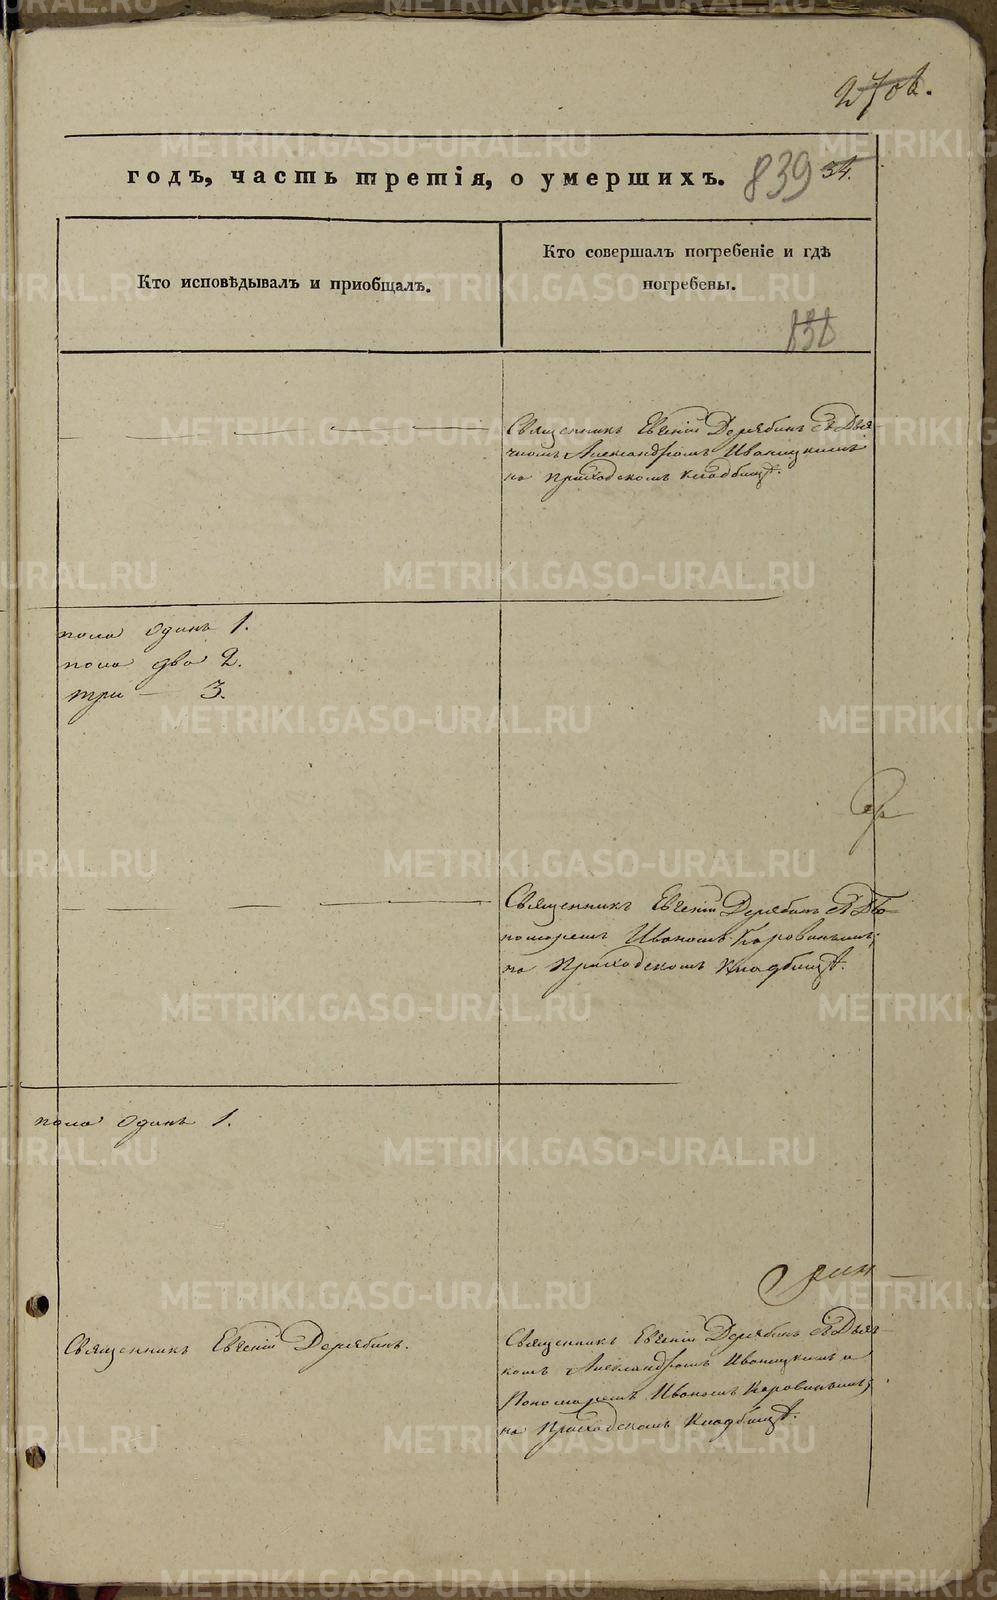 годъ, часть третія, о умершихъ. 839 34.
Кто исповѣдывалъ и приобщалъ.
Кто совершалъ погребеніе и гдѣ
погребены.
Священникъ Евгеній Дерябинъ съ Дья-
чкомъ Александромъ Иваницкимъ
на Приходскомъ кладбищѣ.
пола одинъ 1.
пола два 2.
три — 3.
Священникъ Евгеній Дерябинъ съ По-
номаремъ Иваномъ Коровинымъ;
на Приходскомъ Кладбищѣ.
пола одинъ 1.
Священникъ Евгеній Дерябинъ.
Священникъ Евгеній Дерябинъ съ Дьяч-
комъ Александромъ Иваницкимъ и
Пономаремъ Иваномъ Коровинымъ;
на Приходскомъ Кладбищѣ.
METRIKI.GASO-URAL.RU